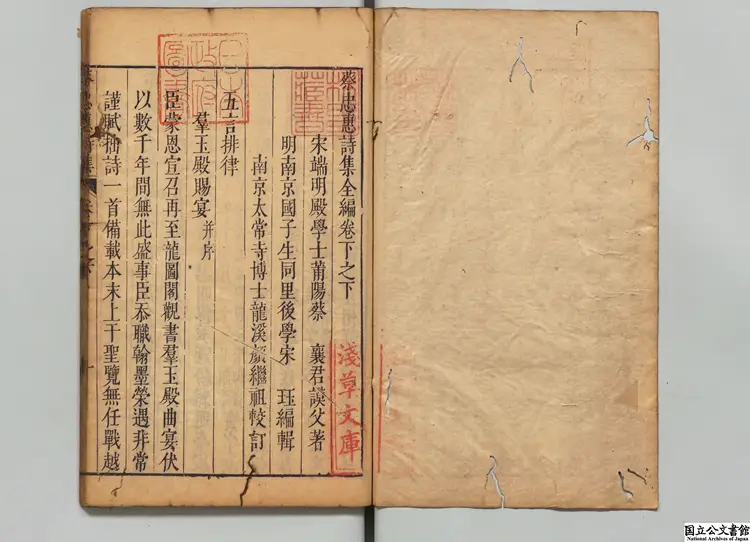 蔡忠惠詩集全編卷下之下
宋端明殿學士莆陽蔡 襄君謨父著
明南京國子生同里後學宋 珏編輯
南京太常寺博士龍溪顏繼祖較訂
五言排律
羣玉殿賜宴 并序
臣蒙恩宣召再至龍圖閣觀書羣玉殿曲宴伏
以數千年間無此盛事臣忝職翰墨榮遇非常
謹賦拙詩一首備載本末上干聖覽無任戰越
淺草文庫
国立公文書館
National Archives of Japan